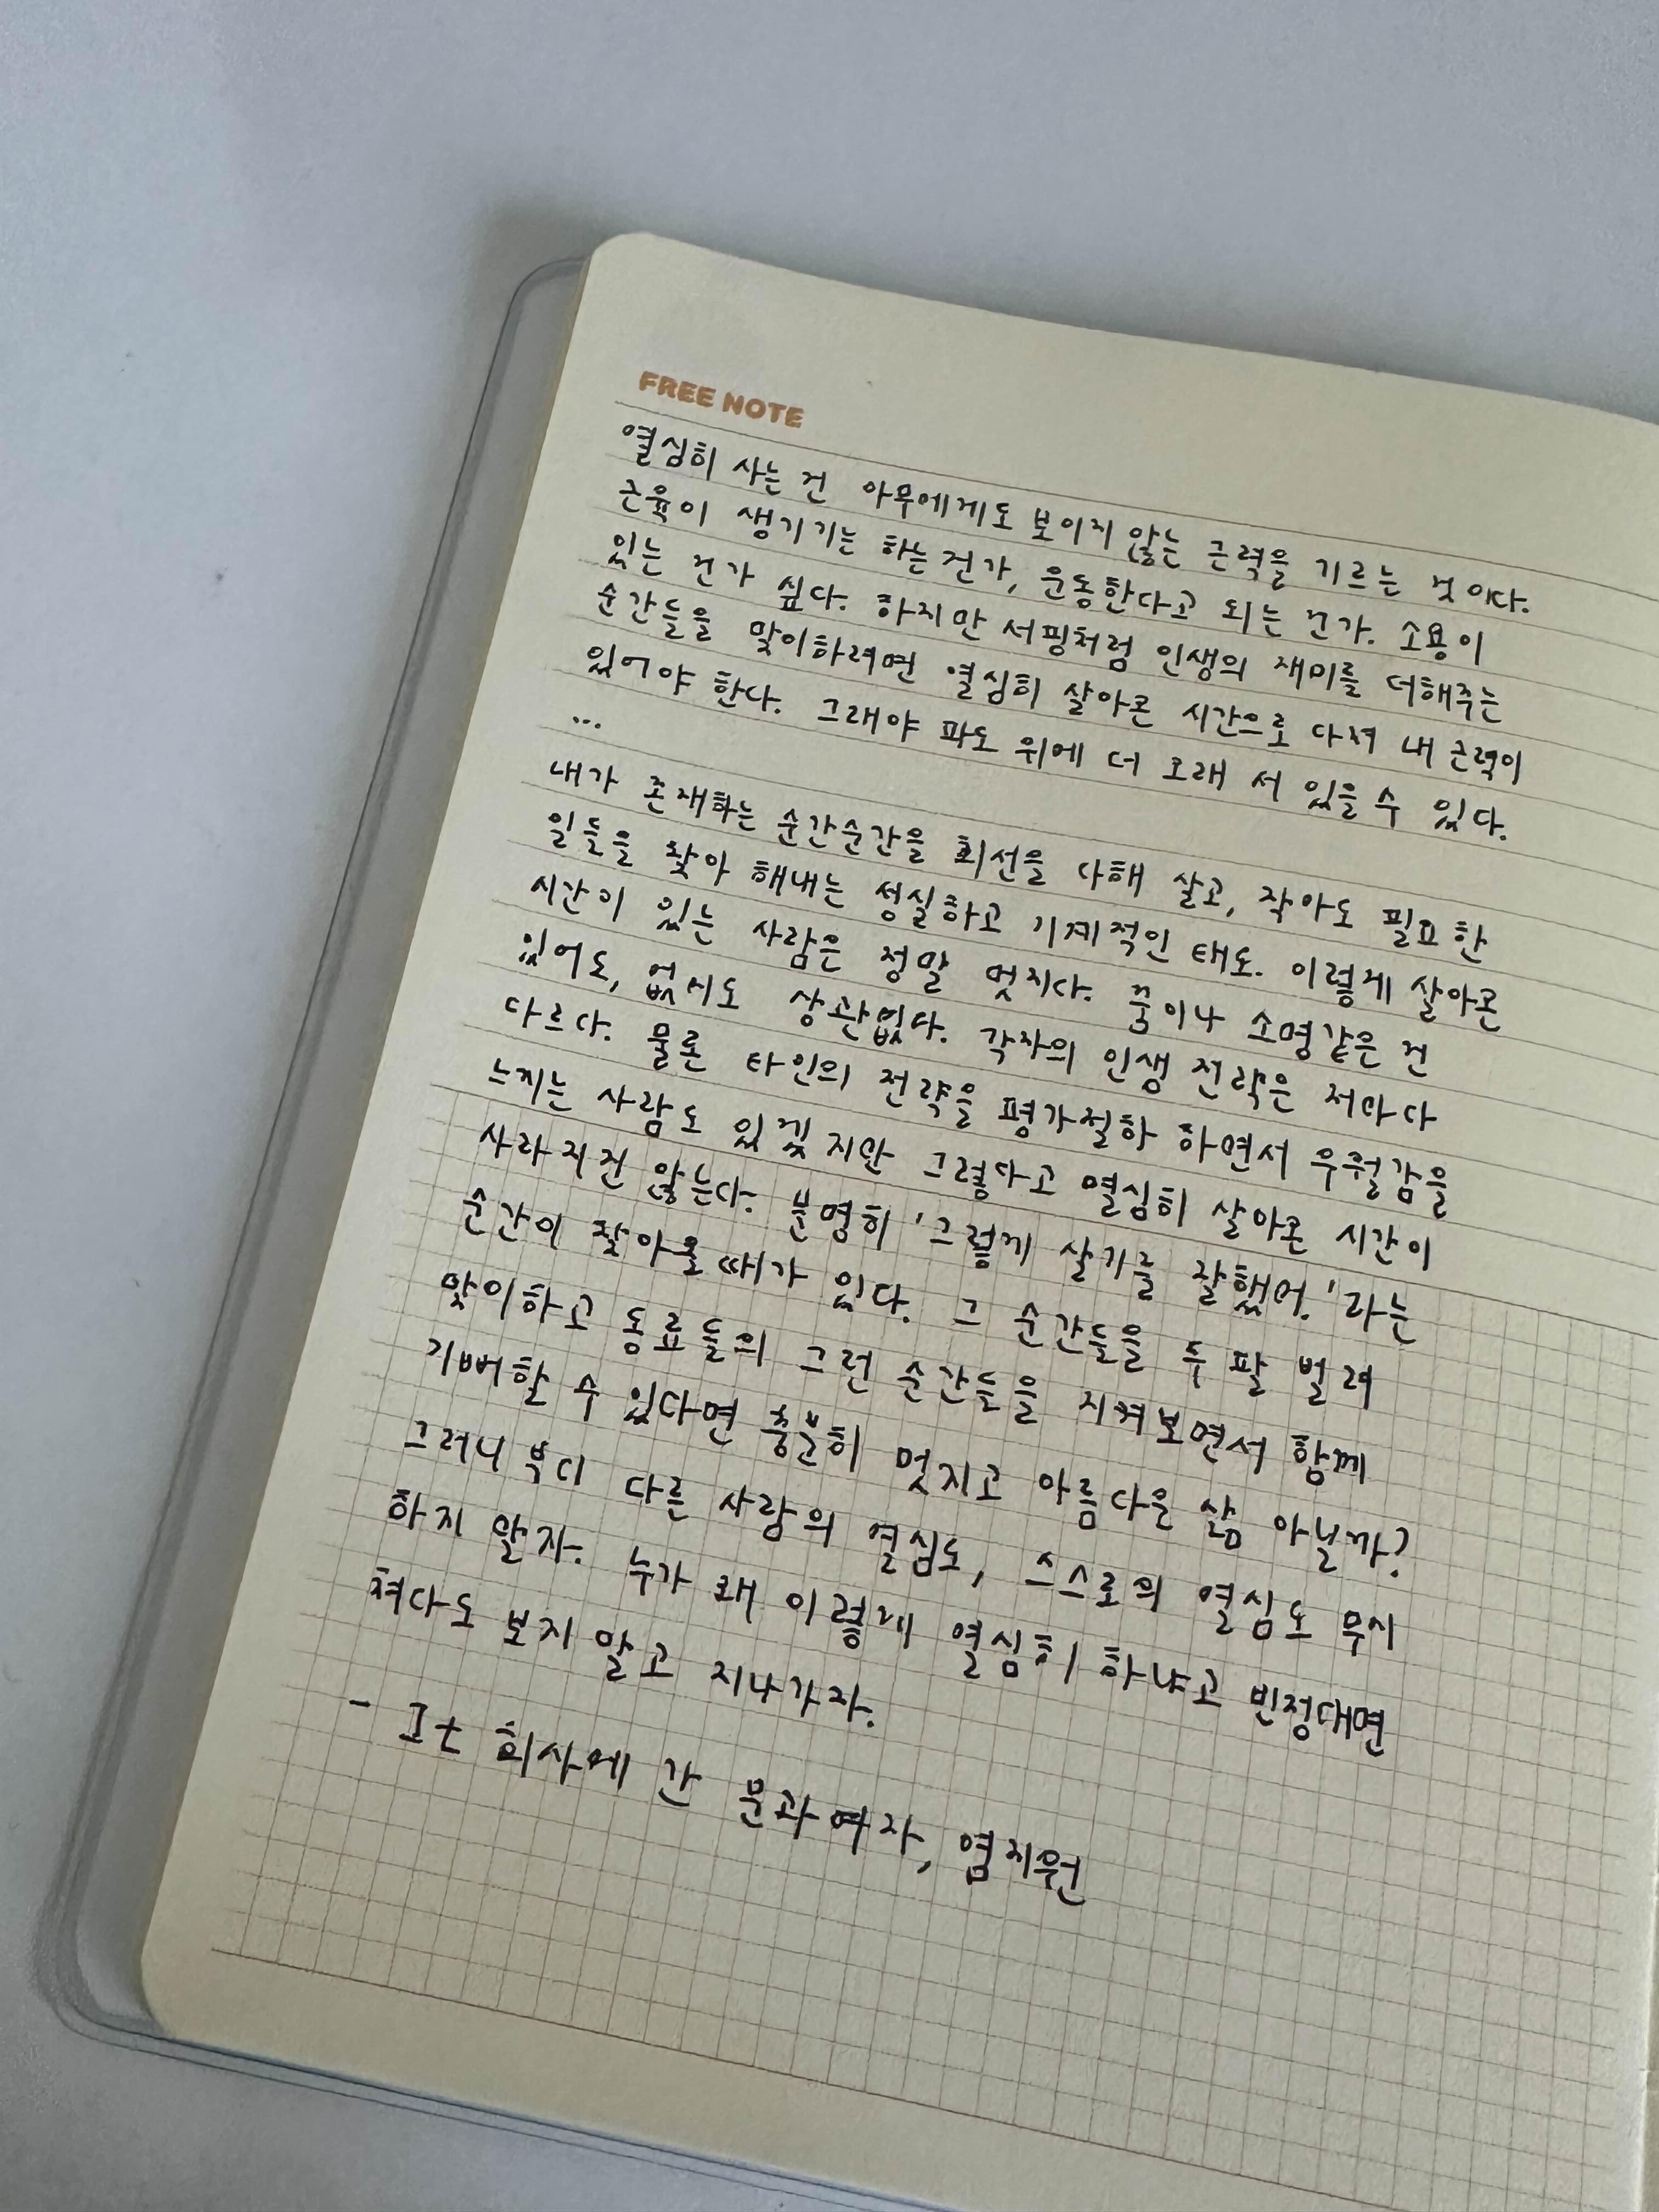 FREE NOTE
열심히 사는 건 아무에게도 보이지 않는 근력을 기르는 것이다.
근육이 생기기는 하는건가, 운동한다고 되는 건가. 소용이
있는 건가 싶다. 하지만 서핑처럼 인생의 재미를 더해주는
순간들을 맞이하려면 열심히 살아온 시간으로 다져 내 근력이
있어야 한다. 그래야 파도 위에 더 오래 서 있을 수 있다.
...
내가 존재하는 순간순간을 최선을 다해 살고, 작아도 필요한
일들을 찾아 해내는 성실하고 기계적인 태도. 이렇게 살아온
시간이 있는 사람은 정말 멋지다. 꿈이나 소명같은 건
있어도, 없어도 상관없다. 각자의 인생 전략은 저마다
다르다. 물론 타인의 전략을 평가절하 하면서 우월감을
느끼는 사람도 있겠지만 그렇다고 열심히 살아온 시간이
사라지진 않는다. 분명히 '그렇게 살기를 잘했어.'라는
순간이 찾아올 때가 있다. 그 순간들을 두 팔 벌려
맞이하고 동료들의 그런 순간들을 지켜보면서 함께
기뻐할 수 있다면 충분히 멋지고 아름다운 삶 아닐까?
그러니 부디 다른 사람의 열심도, 스스로의 열심도 무시
하지 말자. 누가 왜 이렇게 열심히 하냐고 빈정대면
쳐다도 보지 말고 지나가자.
- It 회사에 간 문과여자, 염지원